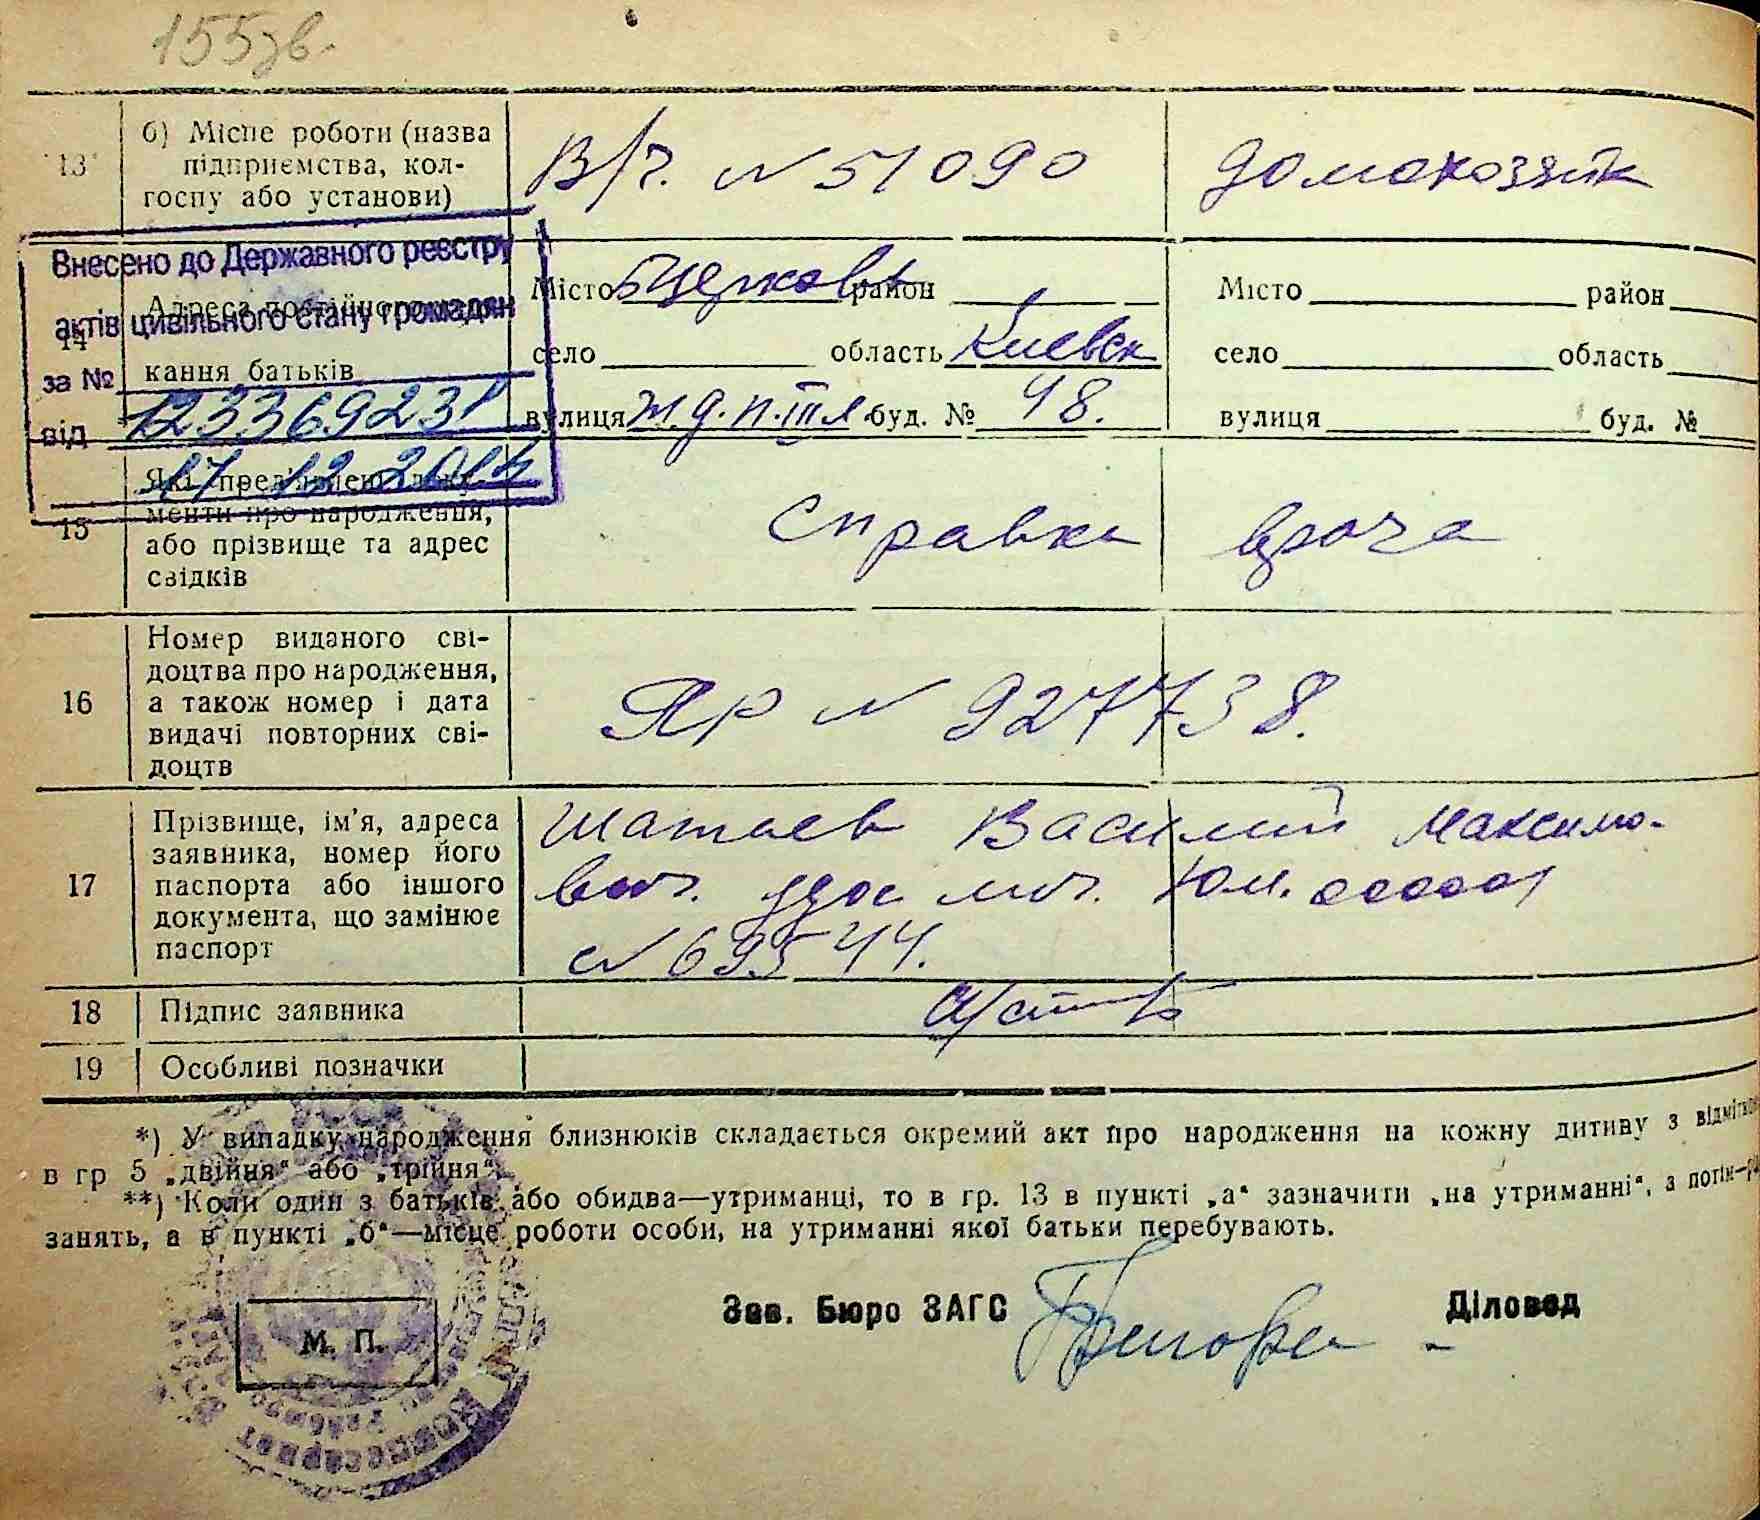 155зв.
13 б) Місце роботи (назва
підприємства, кол-
госпу або установи)
В/г. N 51090
домохозяйк
Внесено до Державного реєстру
актів цивільного стану громадян
за №
123369231
від 17 12 2014
14 Адреса постійного
кання батьків
Місто БЦерковь район
село область Киевск
вулиця ж.д.п. III я буд. № 48.
Місто район
село область
вулиця буд. №
15 Які пред'явлені доку-
менти про народження,
або прізвище та адрес
свідків
Справка врача
16 Номер виданого сві-
доцтва про народження,
а також номер і дата
видачі повторних сві-
доцтв
ЯР N 927738.
17 Прізвище, ім'я, адреса
заявника, номер його
паспорта або іншого
документа, що замінює
паспорт
Василий Максимо-
вич. удос лич.
N 69544.
18 Підпис заявника
19 Особливі позначки
*) У випадку народження близнюків складається окремий акт про народження на кожну дитину з відміткою
в гр 5 „двійня“ або „трійня“.
**) Коли один з батьків або обидва—утриманці, то в гр. 13 в пункті „а“ зазначити „на утриманні“, а потім—
занять, а в пункті „б“—місце роботи особи, на утриманні якої батьки перебувають.
Зав. Бюро ЗАГС
Діловод
М. П.